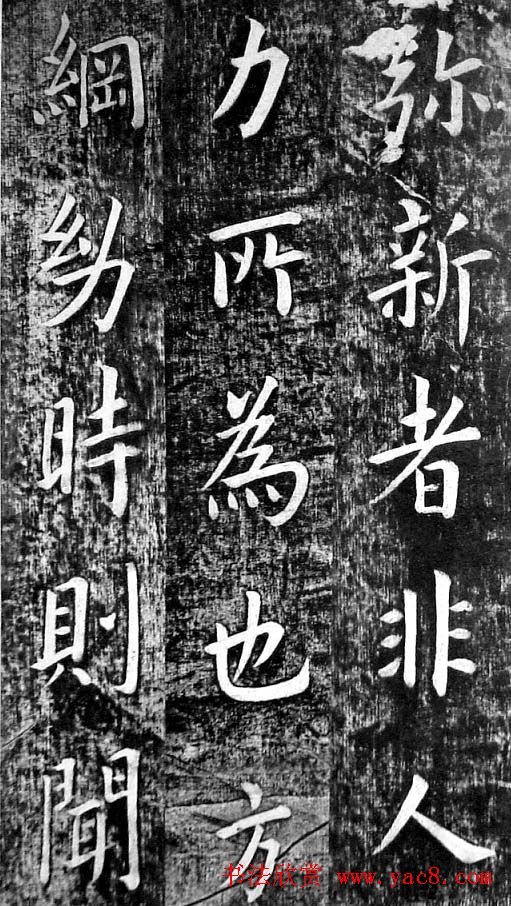 弥新者非人
力所為也方
綱幼時則聞
书法欣赏 www.yac8.com